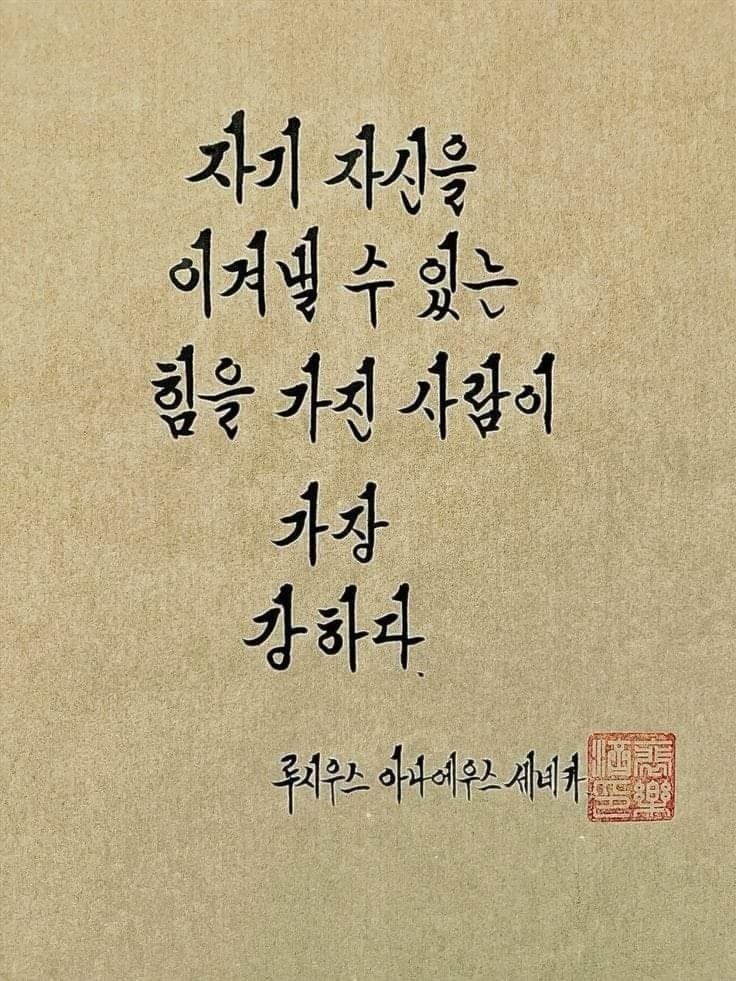 자기 자신을
이겨낼 수 있는
힘을 가진 사람이
가장
강하다.
루시우스 아나에우스 세네카